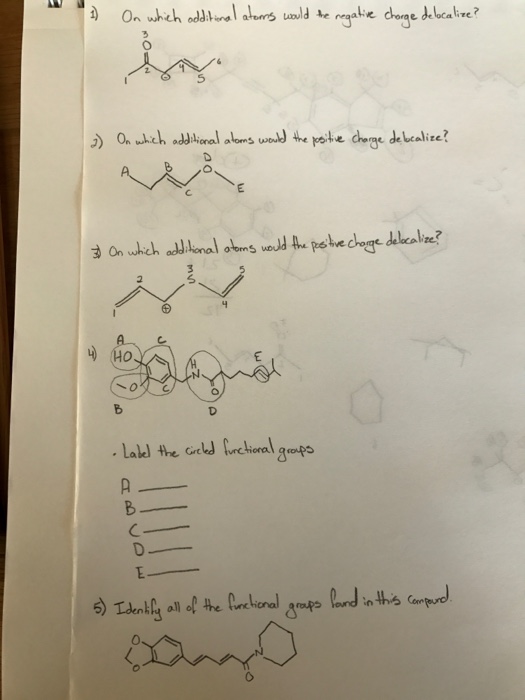 1) On which additional atoms would the negative charge delocalize?
3
O
1 2 ⊖ 4 5 6
2) On which additional atoms would the positive charge delocalize?
A B C D O E
3) On which additional atoms would the positive charge delocalize?
1 2 ⊕ 3 S 4 5
4)
A C
HO H N E
O C O
B D
• Label the circled functional groups
A
B
C
D
E
5) Identify all of the functional groups found in this compound.
O
O N
O